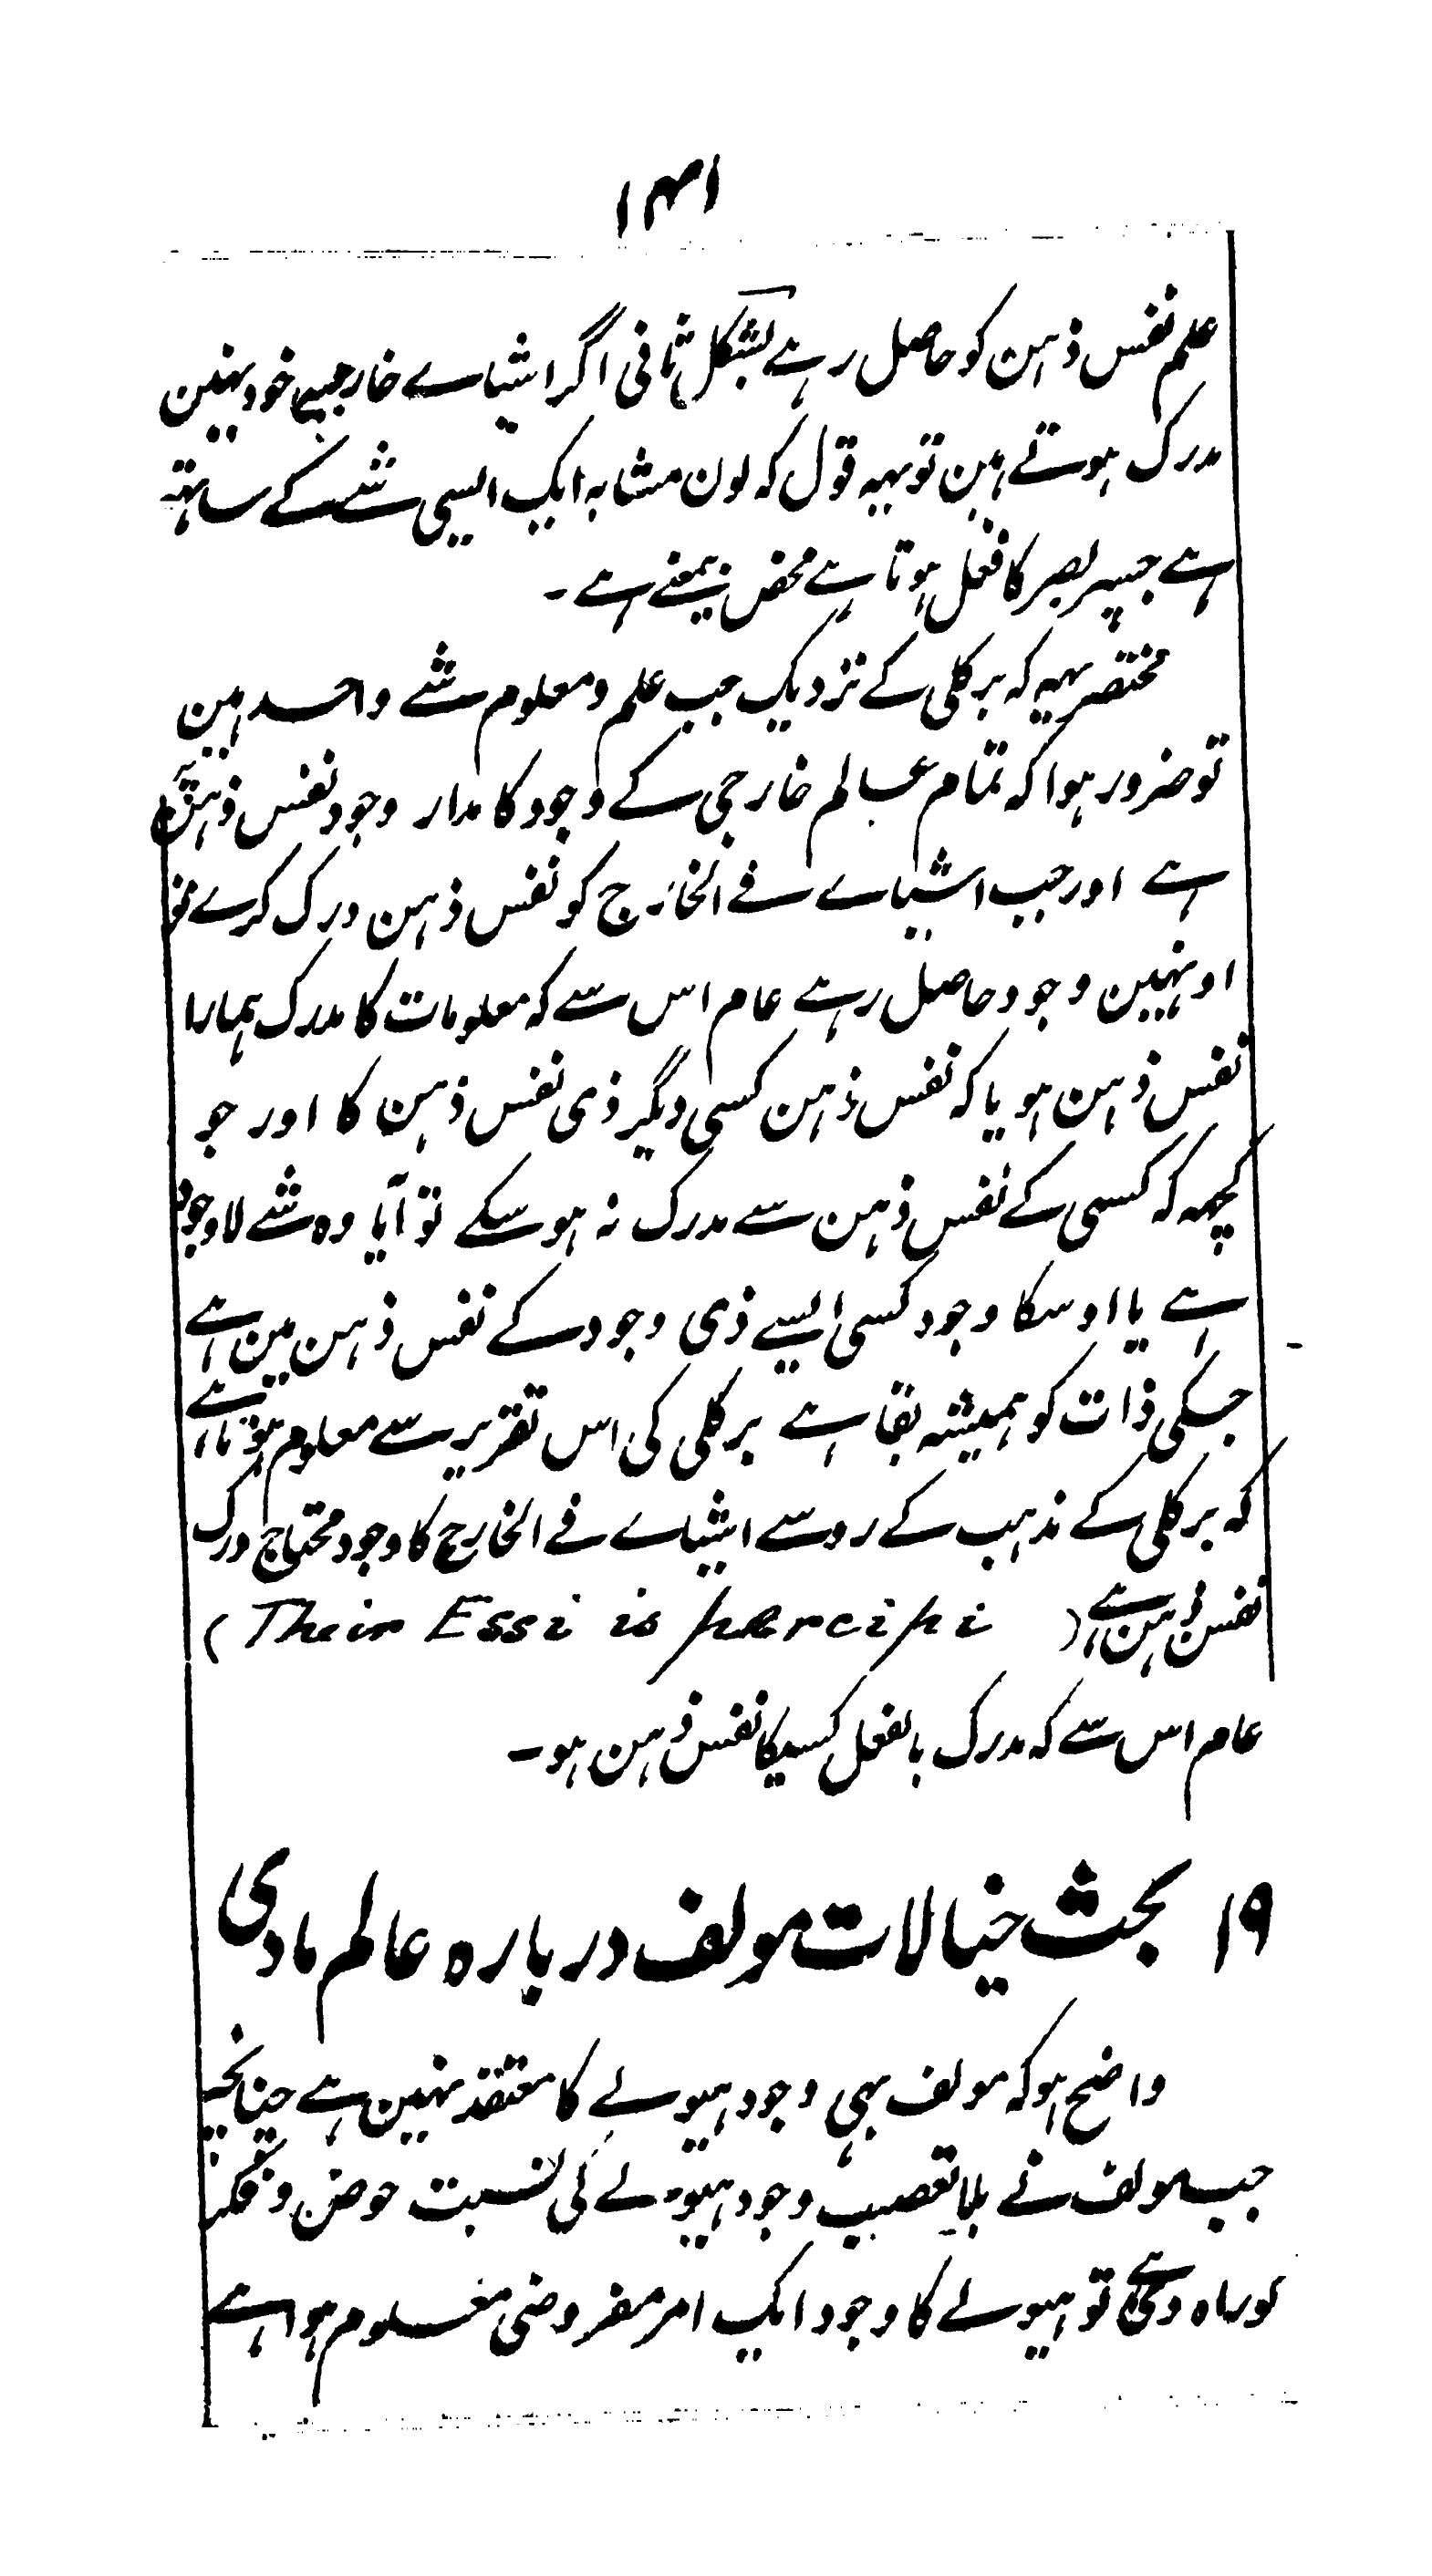 ۱۴۱
علم نفس ذہن کو حاصل رہے بشکل ثانی اگر اشیاے خارجیے خود نہین
مدرک ہوتے ہین تو یہہ قول کہ لون مشابہ ایک ایسی شے کے ساتہہ
ہے جسپر بصر کا فعل ہوتا ہے محض بیمعنے ہے ۔
مختصر یہہ کہ برکلی کے نزدیک جب علم و معلوم شے واحد ہین
تو ضرور ہوا کہ تمام عالم خارجی کے وجود کا مدار وجود نفس ذہن پر
ہے اور جب اشیاے فے الخارج کو نفس ذہن درک کرے تو
اونہین وجود حاصل رہے عام اس سے کہ معلومات کا مدرک ہمارا
نفس ذہن ہو یا کہ نفس ذہن کسی دیگر ذی نفس ذہن کا اور جو
کچہہ کہ کسی کے نفس ذہن سے مدرک نہ ہو سکے تو آیا وہ شے لا وجود
ہے یا اوسکا وجود کسی ایسے ذی وجود کے نفس ذہن مین ہے
جسکی ذات کو ہمیشہ بقا ہے برکلی کی اس تقریر سے معلوم ہوتا ہے
کہ برکلی کے مذہب کے رو سے اشیاے فے الخارج کا وجود محتاج درک
نفس ذہن ہے (Their Essi is percipi)
عام اس سے کہ مدرک بالفعل کسیکا نفس ذہن ہو ۔
۱۹ بحث خیالات مولف دربارہ عالم مادی
واضح ہو کہ مولف بہی وجود ہیولے کا معتقد نہین ہے چنانچہ
جب مولف نے بلا تعصب وجود ہیولے کی نسبت خوض و فکر
کو راہ دی تو ہیولے کا وجود ایک امر مفروضی معلوم ہوا ہے